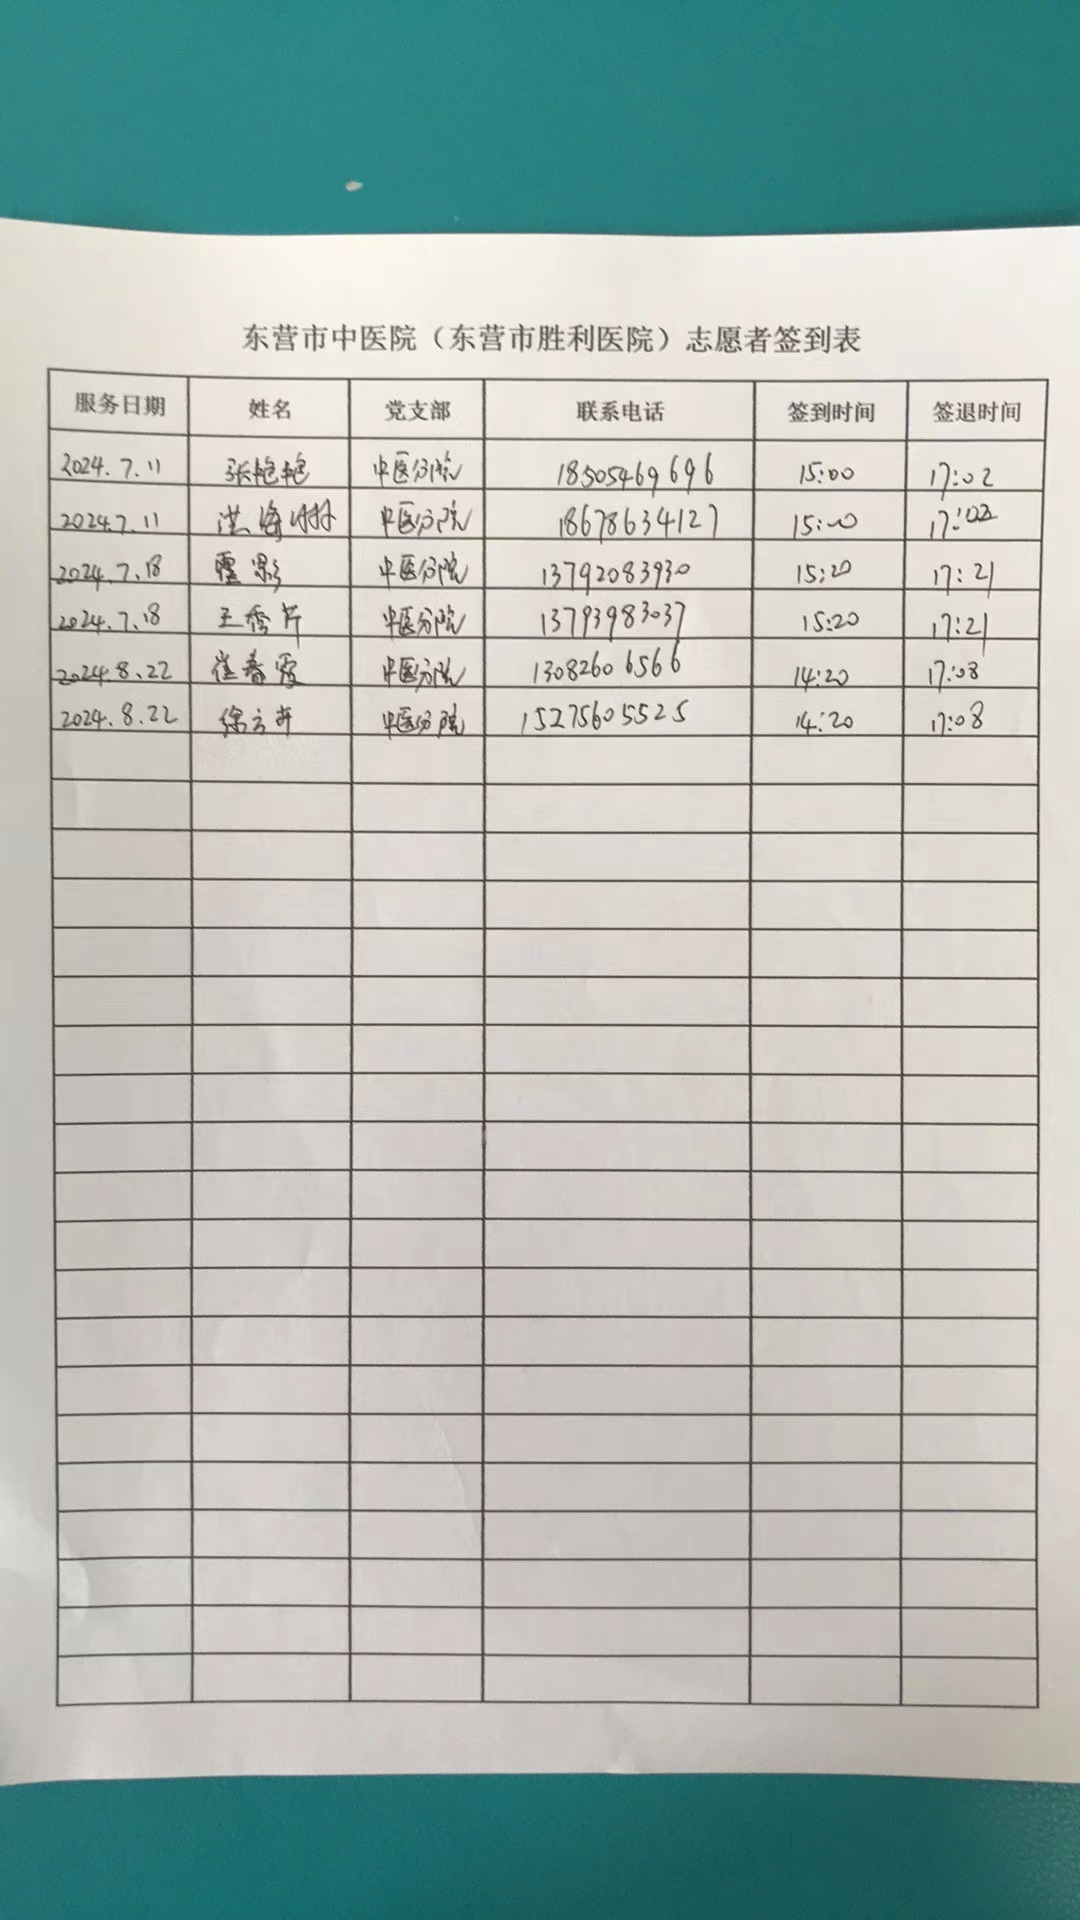 东营市中医院（东营市胜利医院）志愿者签到表
服务日期 姓名 党支部 联系电话 签到时间 签退时间
2024.7.11 张艳艳 中医分院 18505469696 15:00 17:02
2024.7.11 洪海 中医分院 18678634127 15:00 17:02
2024.7.18 霍影 中医分院 13792083930 15:20 17:21
2024.7.18 王秀芹 中医分院 13793983037 15:20 17:21
2024.8.22 崔春霞 中医分院 13082606566 14:20 17:08
2024.8.22 徐 中医分院 15275605525 14:20 17:08